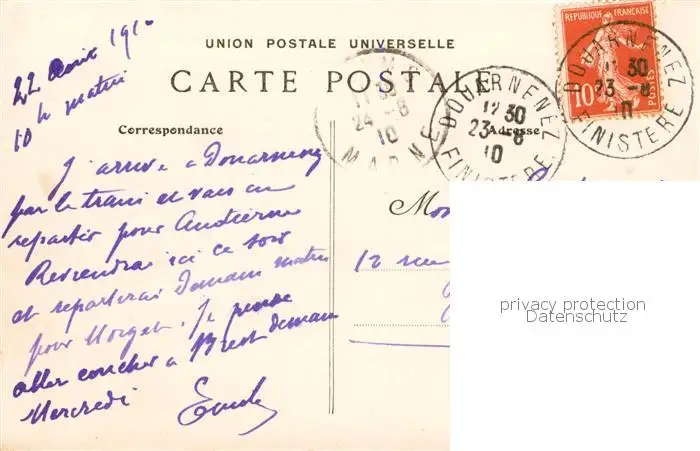 22 Août 1910
10 h matin
UNION POSTALE UNIVERSELLE
CARTE POSTALE
Correspondance
Adresse
J'arrive à Douarnenez
par le train et vais en
repartir pour Audierne
Reviendrai ici ce soir
et repartirai demain matin
pour Morgat. Je pense
aller coucher à Brest demain
Mercredi
12 rue
10
DOUARNENEZ
12 30
23 - 8
10
FINISTERE
DOUARNENEZ
12 30
23 - 8
10
FINISTERE
24 - 8
10
MARNE
privacy protection
Datenschutz